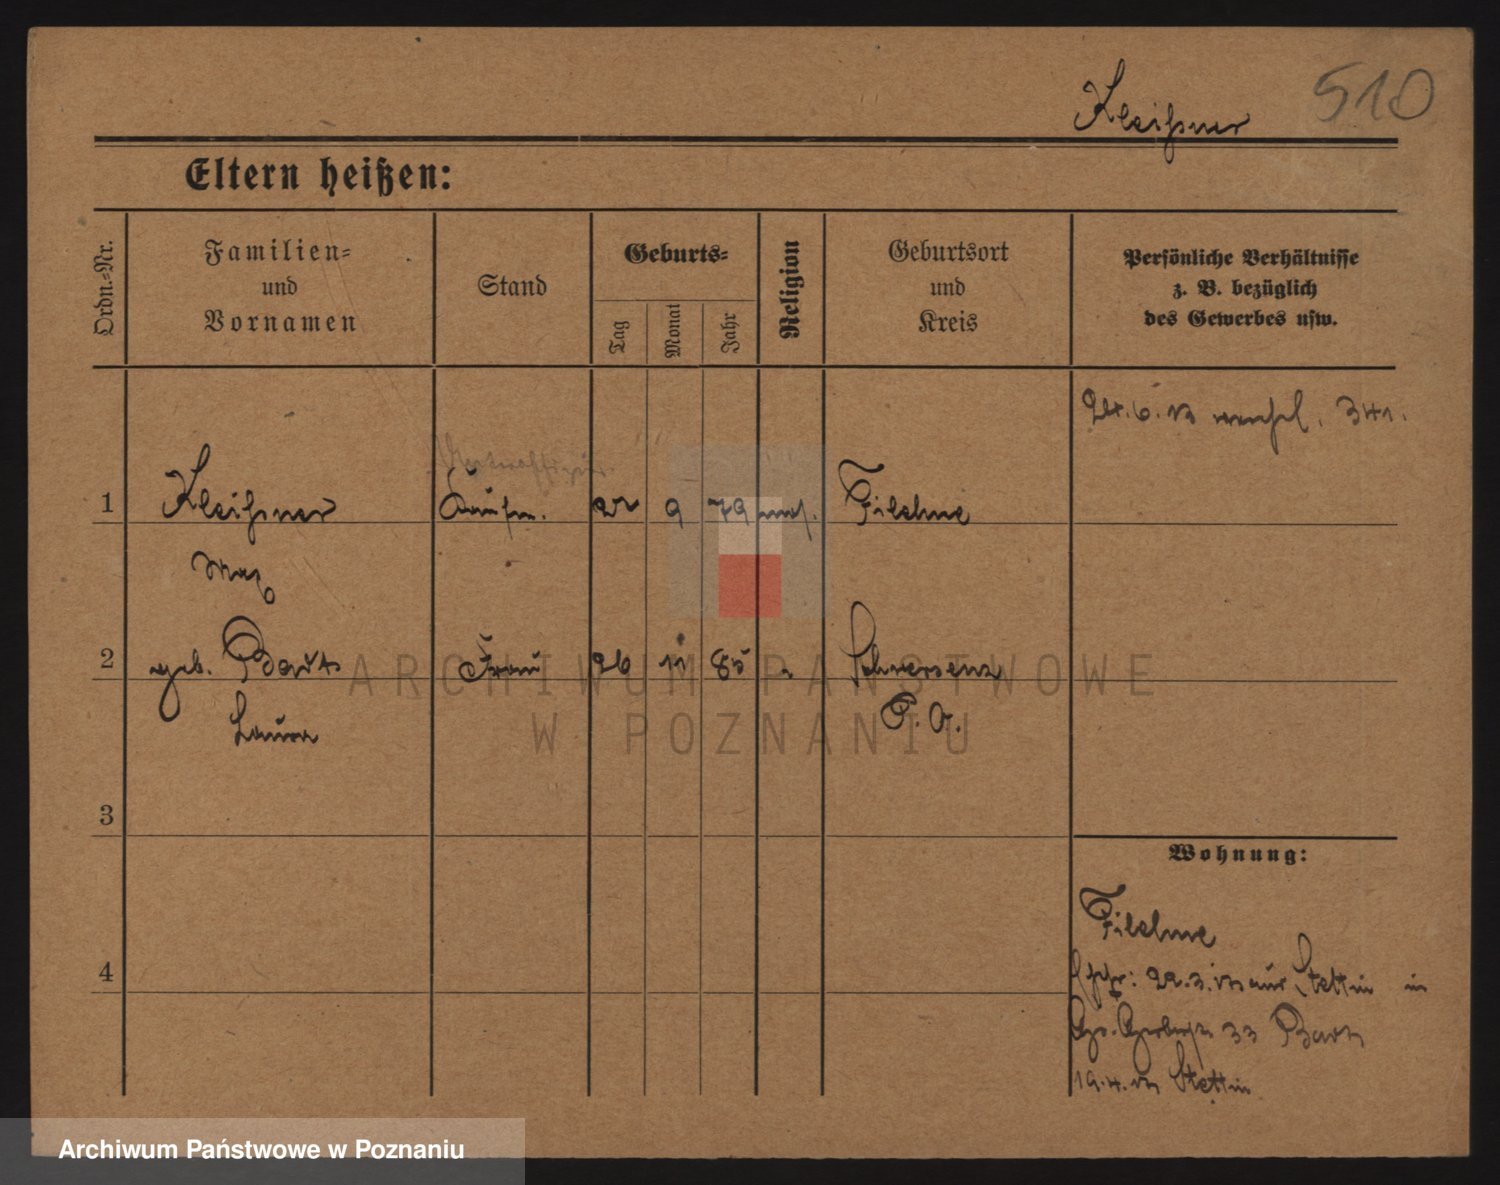 Kleißner 510
Eltern heißen:
Ordn.-Nr.
Familien-
und
Vornamen
Stand
Geburts-
Tag
Monat
Jahr
Religion
Geburtsort
und
Kreis
Persönliche Verhältnisse
z. B. bezüglich
des Gewerbes usw.
24.6.13 341.
1 Kleißner Kaufm. 9 79 mos. Filehne
Max
2 geb. Frau 26 11 85 " Schwersenz
Laura P. O.
3
4
Wohnung:
Filehne
22.3.13 aus Stettin in
33
19.4.13 Stettin
ARCHIWUM PAŃSTWOWE
W POZNANIU
Archiwum Państwowe w Poznaniu